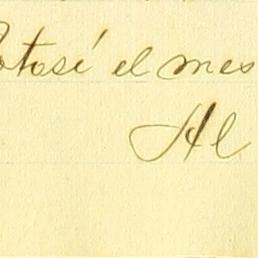 otosí el mes
Al